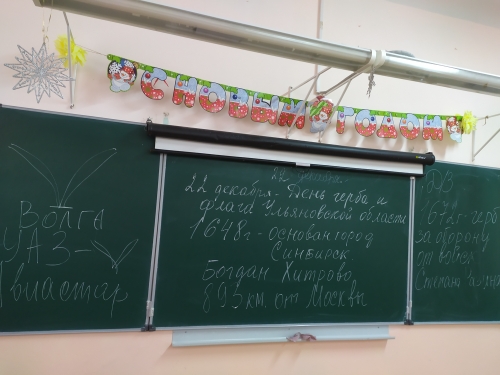 С НОВЫМ ГОДОМ
ВОЛГА
УАЗ-
Авиастар
22 декабря
22 декабря - День герба и
флага Ульяновской области
1648г - основан город
Синбирск.
Богдан Хитрово
893 км от Москвы
Д/З
1672г - герб
за оборону
от войск
Степана Разина